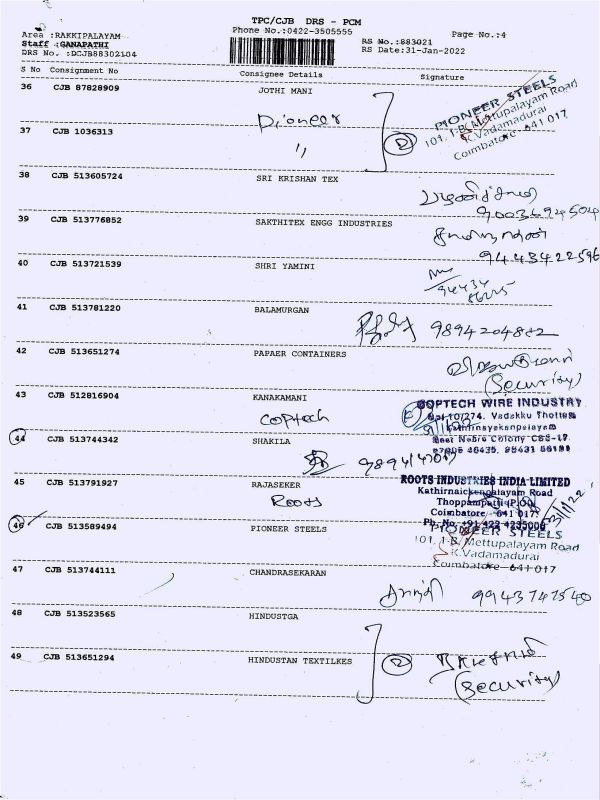 TPC/CJB DRS - PCM
Phone No.:0422-3505555
Page No.:4
Area :RAKKIPALAYAM
Staff :GANAPATHI
DRS No. :DCJB88302104
RS No.:883021
RS Date:31-Jan-2022
S No Consignment No Consignee Details Signature
36 CJB 87828909 JOTHI MANI
Pioneer
PIONEER STEELS
101, 1-B, Mettupalayam Road
K.Vadamadurai
Coimbatore - 641 017
37 CJB 1036313
"
2
38 CJB 513605724 SRI KRISHAN TEX
9003694504
39 CJB 513776852 SAKTHITEX ENGG INDUSTRIES
9443422596
40 CJB 513721539 SHRI YAMINI
94434
41 CJB 513781220 BALAMURGAN
9894204882
42 CJB 513651274 PAPAER CONTAINERS
(Security)
43 CJB 512816904 KANAKAMANI
Coptech
COPTECH WIRE INDUSTRY
10/274, Vadakku Thottam
Kathirnayakanpalayam
Near Nobis Colony CBE-17
44 CJB 513744342 SHAKILA
45 CJB 513791927 RAJASEKER
Roots
ROOTS INDUSTRIES INDIA LIMITED
Kathirnaickenpalayam Road
Thoppampatti (P.O)
Coimbatore - 641 017
Ph. No. +91 422 4235000
46 CJB 513589494 PIONEER STEELS
PIONEER STEELS
101, 1-B, Mettupalayam Road
K.Vadamadurai
Coimbatore - 641 017
47 CJB 513744111 CHANDRASEKARAN
9943747540
48 CJB 513523565 HINDUSTGA
49 CJB 513651294 HINDUSTAN TEXTILKES
2
(Security)